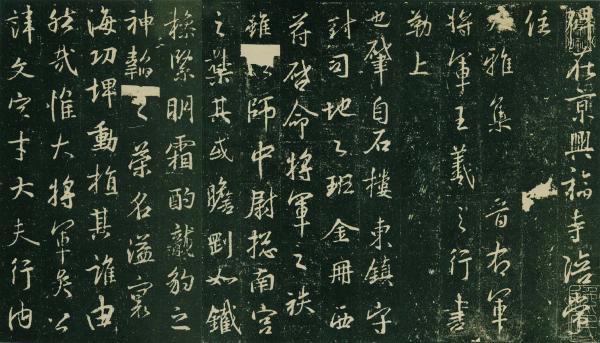 碑在京興福寺陪常
住
大雅集 晉右軍
將軍王羲之行書
勒上
也肇自石樓東鎮守
封司地之班金冊西
符啓命將軍之秩
雖以師中尉揔南宮
之業其或膽剛如鐵
操緊明霜酌龍豹之
神韜之榮名溢寰
海功埤動植其誰由
然哉惟大將軍矣公
諱文字才大夫行內